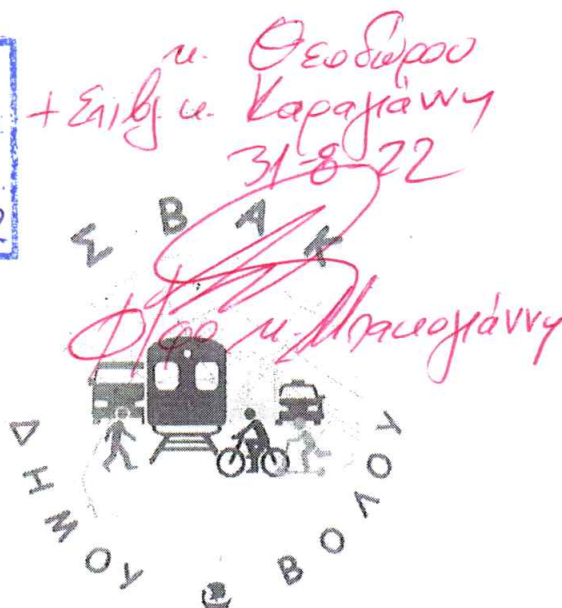 κ. Θεοδώρου
+ Επιβλ. κ. Καραγιάννη
31-8-22
ΣΒΑΚ
κ. Μπακογιάννη
ΔΗΜΟΥ ΒΟΛΟΥ